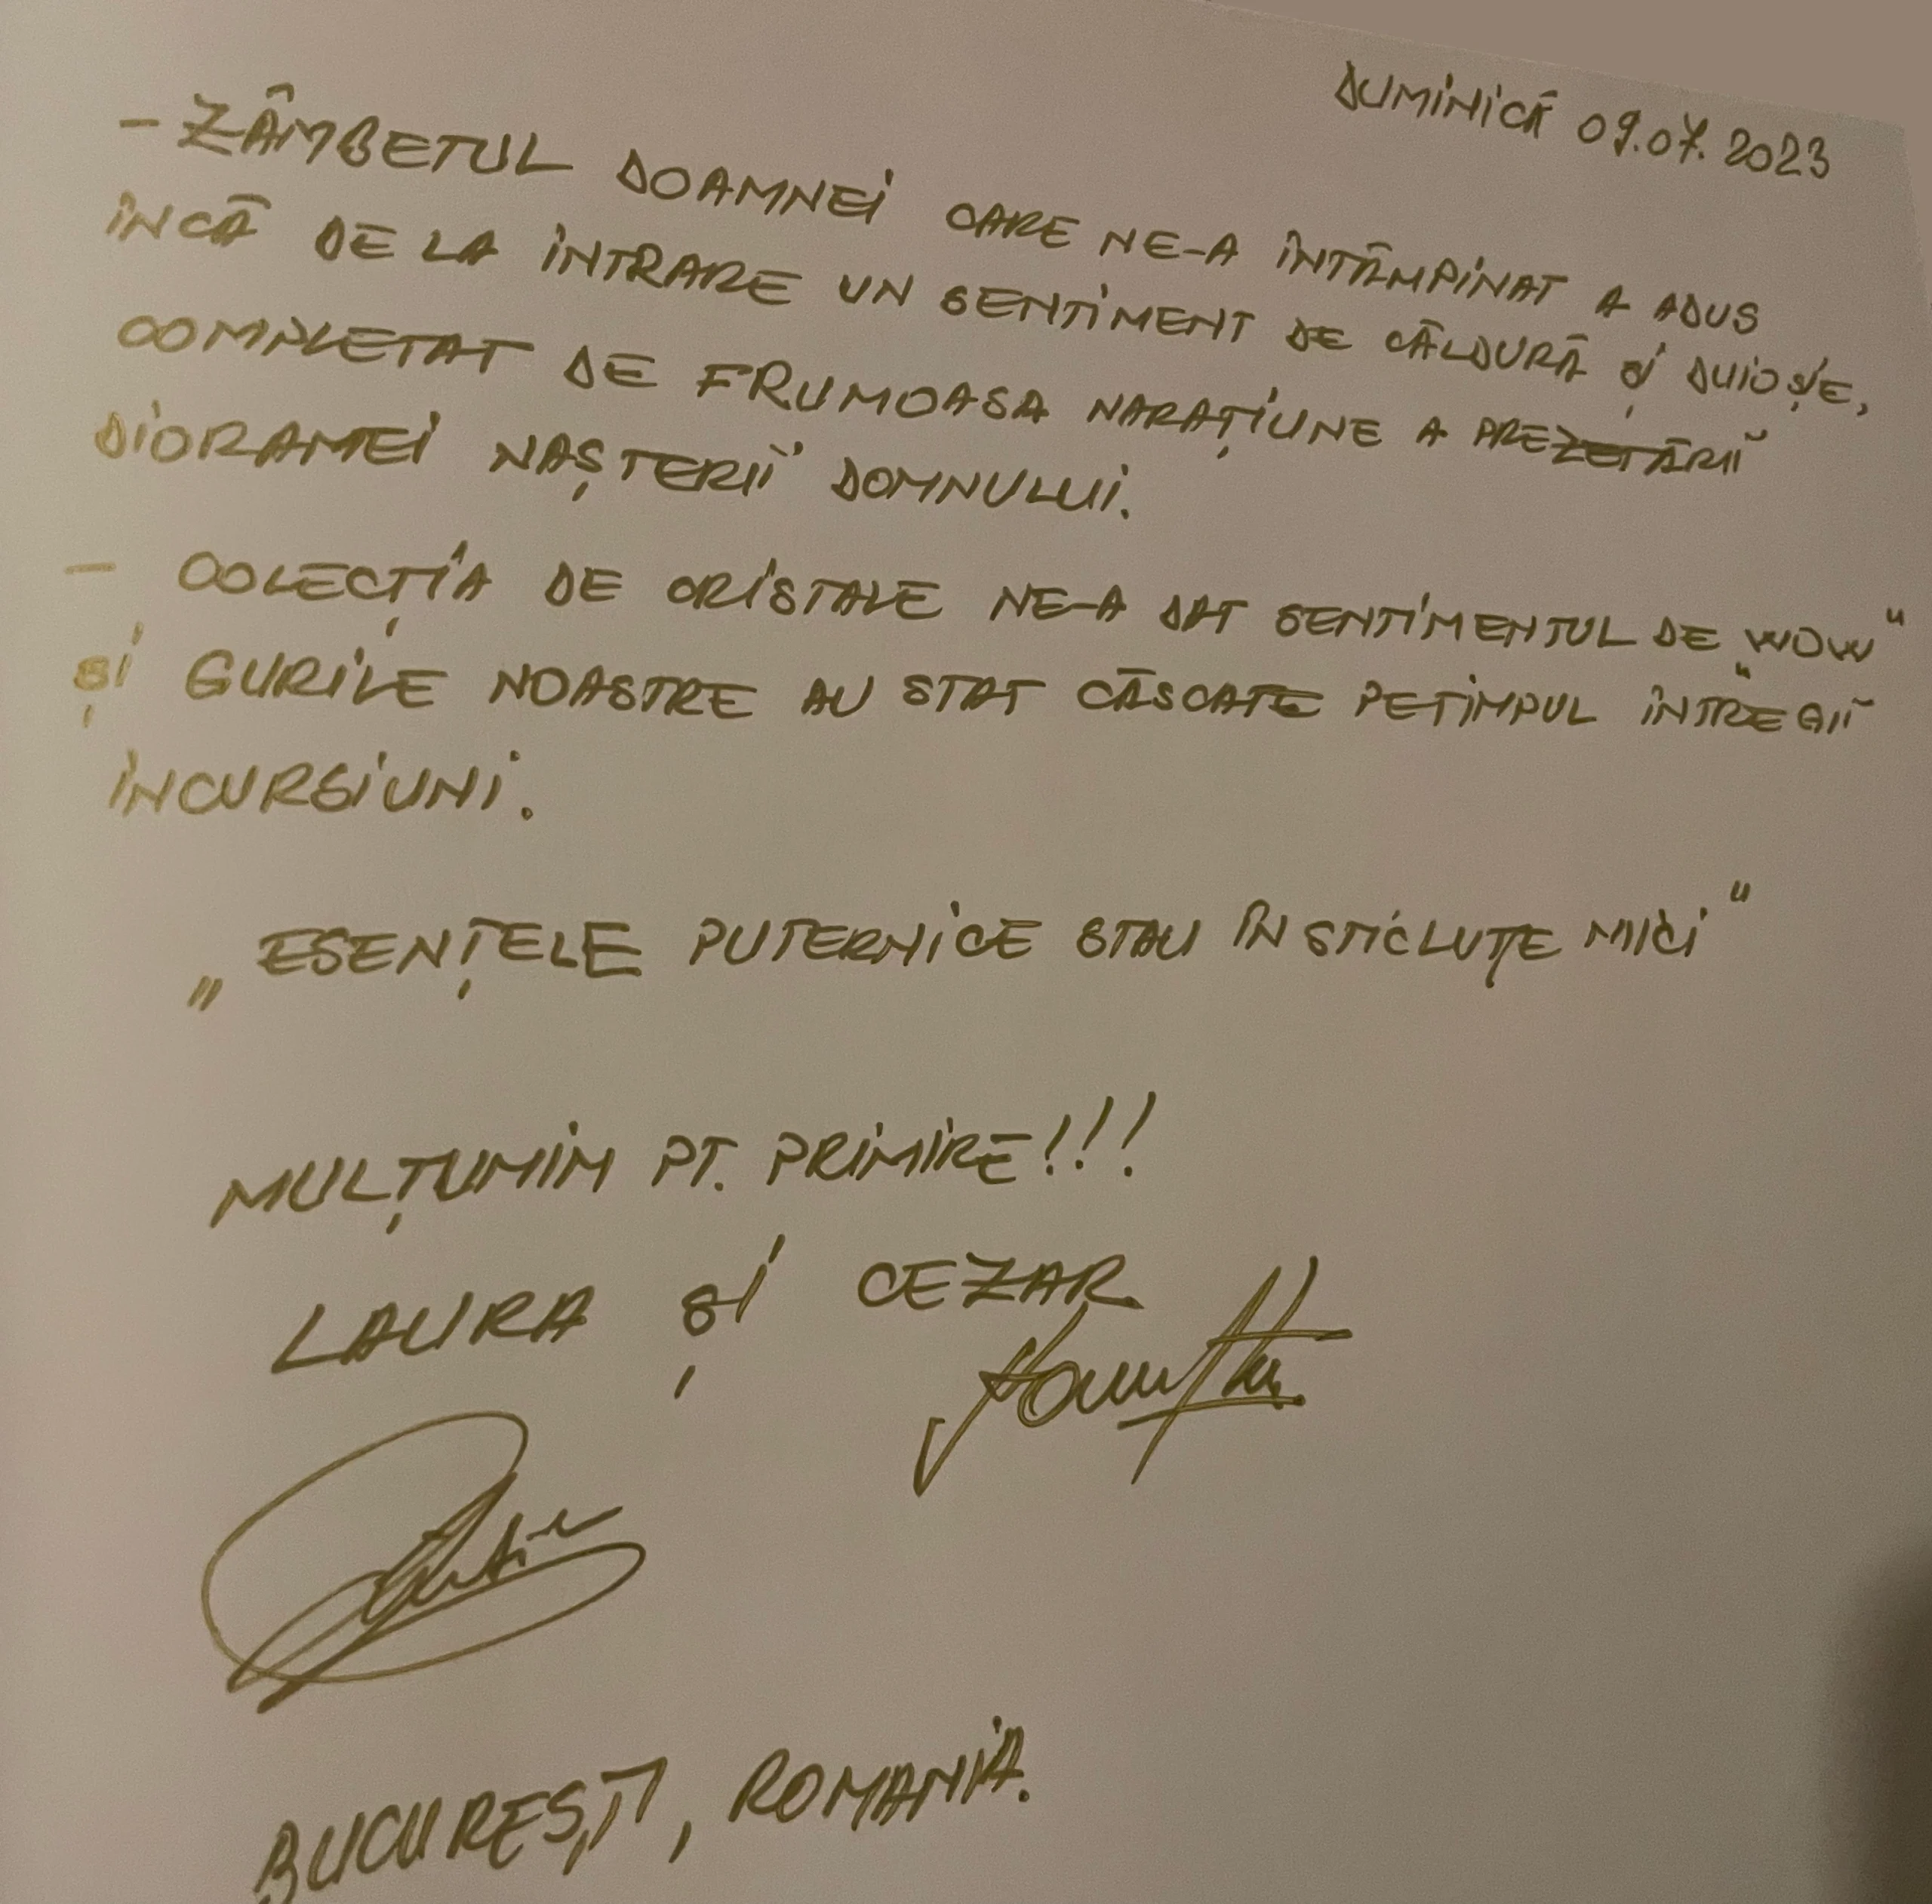 DUMINICĂ 09.07.2023
- ZÂMBETUL DOAMNEI CARE NE-A ÎNTÂMPINAT A ADUS
ÎNCĂ DE LA INTRARE UN SENTIMENT DE CĂLDURĂ ȘI DUIOȘIE,
COMPLETAT DE FRUMOASA NARAȚIUNE A PREZETĂRII
DIORAMEI NAȘTERII DOMNULUI.
- COLECȚIA DE CRISTALE NE-A DAT SENTIMENTUL DE „WOW"
ȘI GURILE NOASTRE AU STAT CĂSCATE PE TIMPUL ÎNTREGII
INCURSIUNI.
„ESENȚELE PUTERNICE STAU ÎN STICLUȚE MICI"
MULȚUMIM PT. PRIMIRE!!!
LAURA ȘI CEZAR
BUCUREȘTI, ROMANIA.